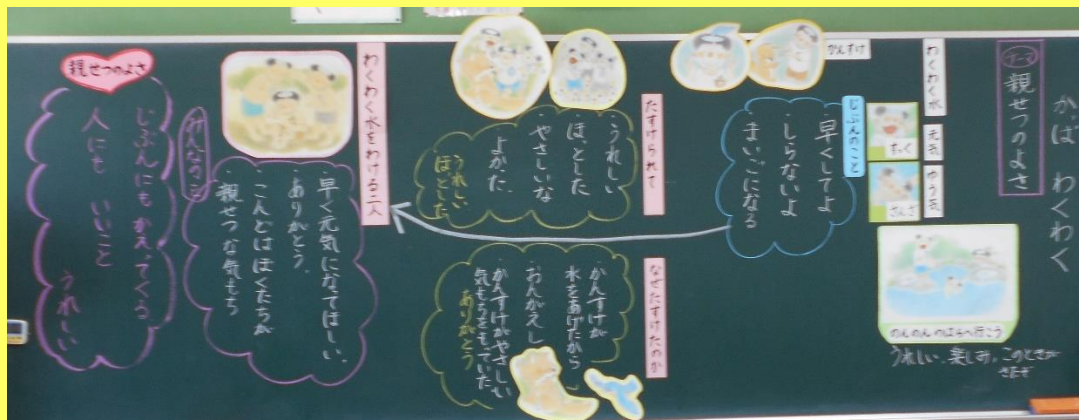 かっぱ わくわく
テーマ
親せつのよさ
わくわく水
元気
ゆう気
かんすけ
ちっく
さんさ
のんのんのはらへ行こう
うれしい、楽しみ、このときが
きたぞ
じぶんのこと
早くしてよ
しらないよ
まいごになる
たすけられて
・うれしい
・ほっとした
・やさしいな
・よかった
うれしい
ほっとした
なぜたすけたのか
・かんすけが
水をあげたから
・おんがえし
・かんすけがやさしい
気もちをもっていた
ありがとう
わくわく水をわける二人
みんなのこと
・早く元気になってほしい。
・ありがとう。
・こんどはぼくたちが
・親せつな気もち
親せつのよさ
じぶんにも かえってくる
人にも いいこと
うれしい